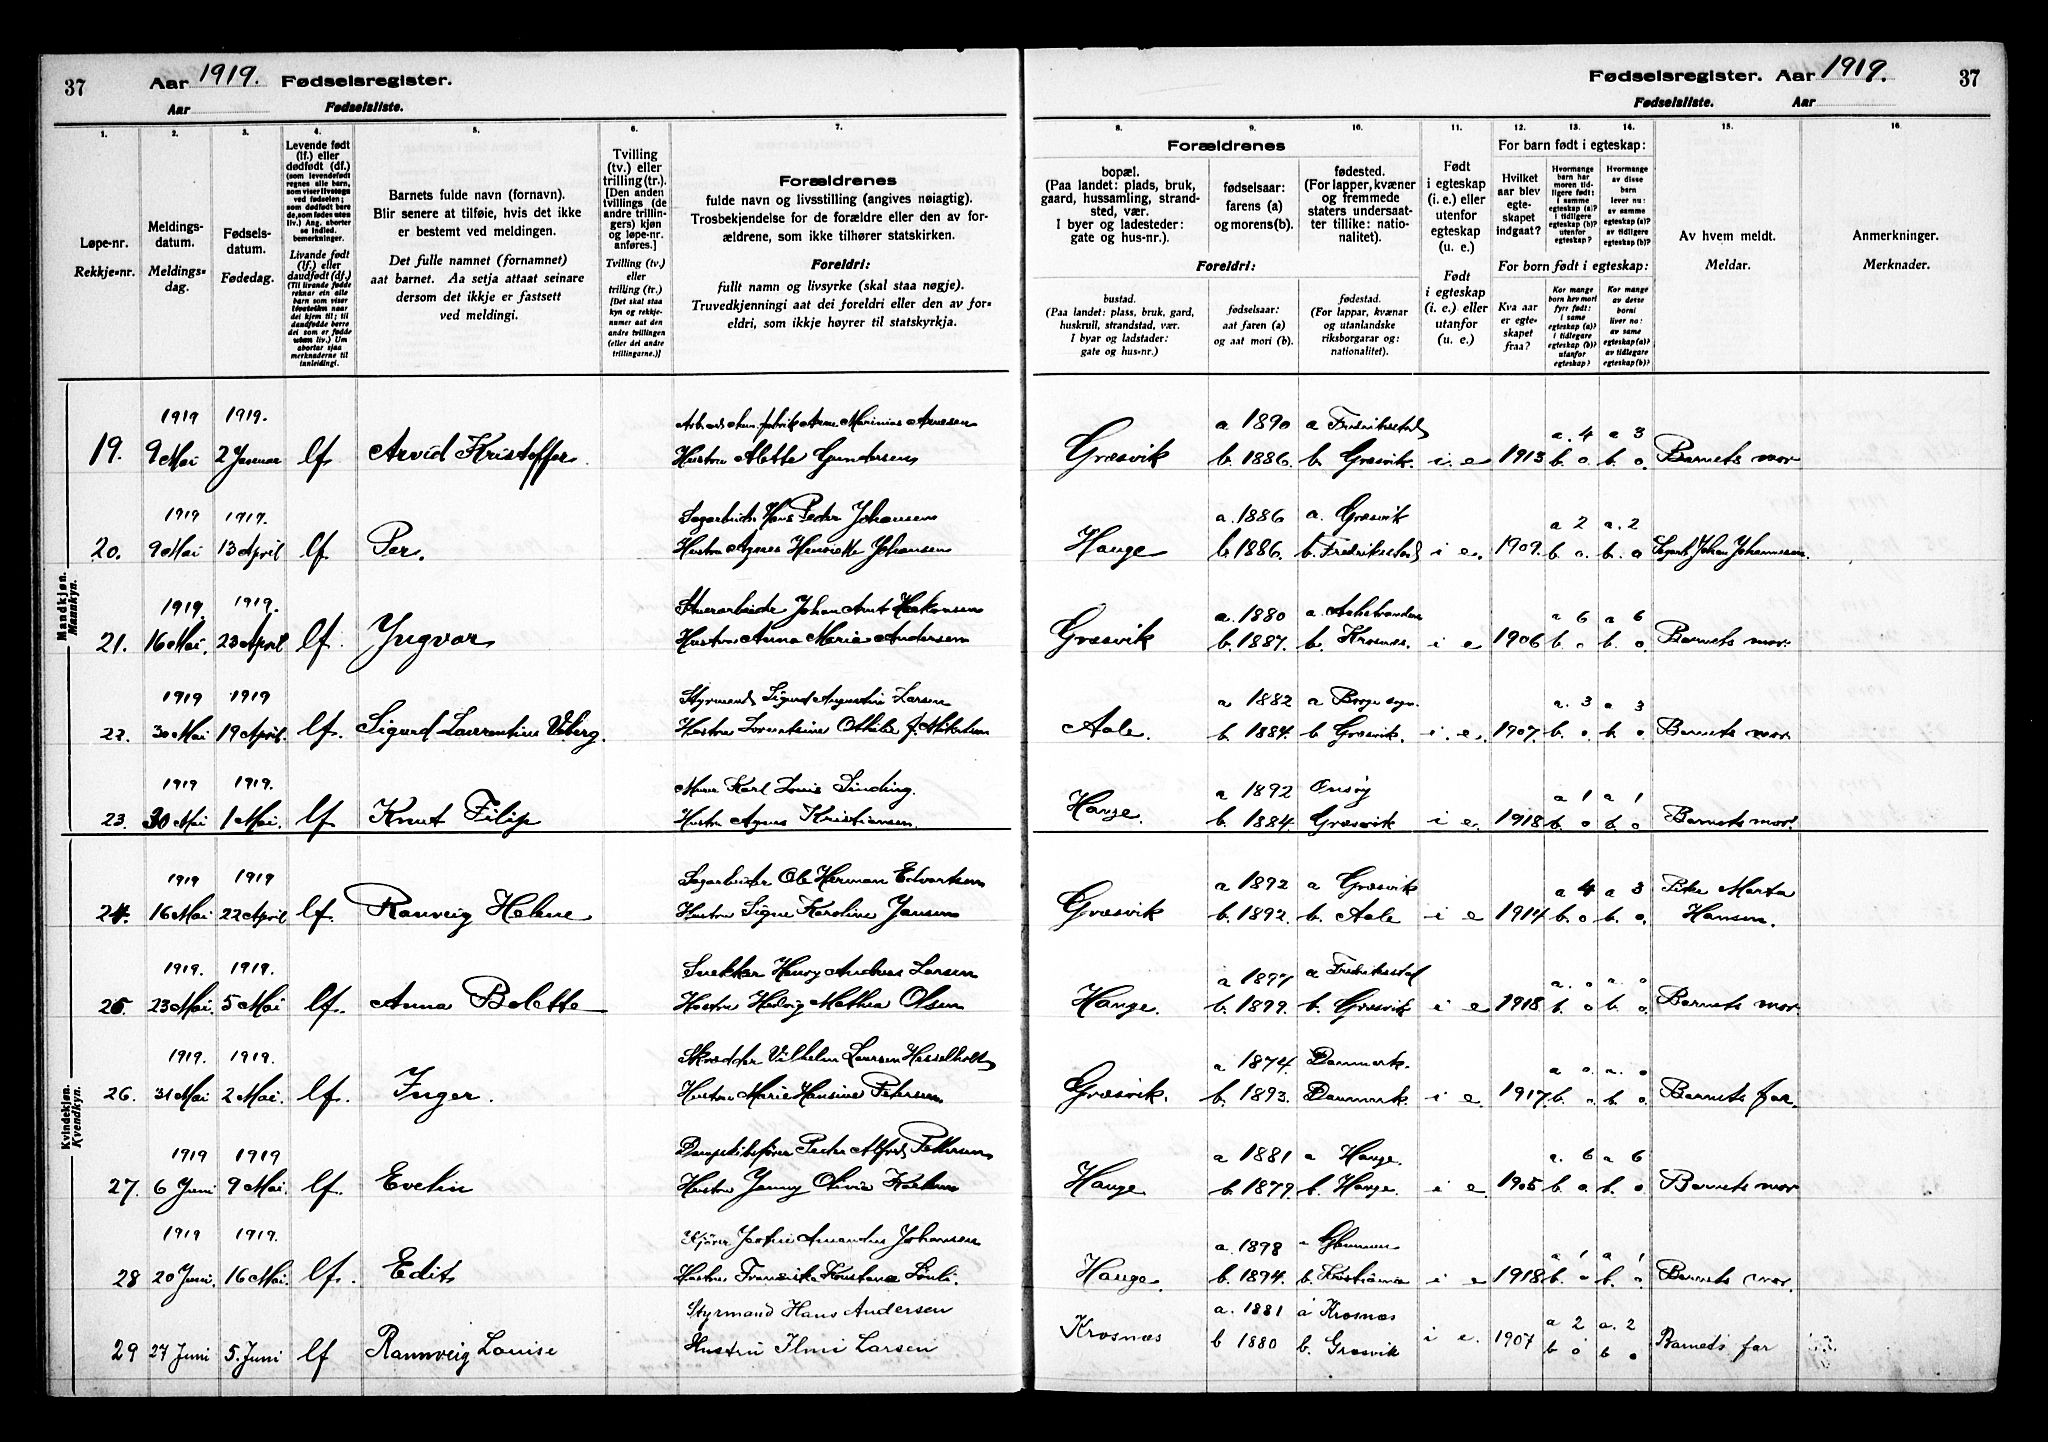 37 Aar 1919. Fødselsregister.
Aar Fødselsliste.
Fødselsregister. Aar 1919. 37
Fødselsliste. Aar
1. 2. 3. 4. 5. 6. 7.
Løpe-nr.
Rekkje-nr.
Meldings-
datum.
Meldings-
dag.
Fødsels-
datum.
Fødedag.
Levende født
(lf.) eller
dødfødt (df.)
(som levendefødt
regnes alle barn,
som viser livstegn
ved fødselen;
som dødfødt bare
de, som fødes uten
liv.) Ang. aborter
se indled.
bemerkninger.
Livande født
(lf.) eller
daudfødt (df.)
(Til livande fødde
reknar ein alle
born som viser
livsteikn naar
dei kjem til; til
daudfødde berre
dei som er fødde
utan liv.) Um
abortar sjaa
merknaderne til
innleidingi.
Barnets fulde navn (fornavn).
Blir senere at tilføie, hvis det ikke
er bestemt ved meldingen.
Det fulle namnet (fornamnet)
aat barnet. Aa setja attaat seinare
dersom det ikkje er fastsett
ved meldingi.
Tvilling
(tv.) eller
trilling (tr.).
[Den anden
tvillings (de
andre trillin-
gers) kjøn
og løpe-nr.
anføres.]
Tvilling (tv.)
eller
trilling (tr.)
[Det skal staa
kyn og rekkje-
numer aat den
andre tvillingen
(eller dei andre
trillingarne.)]
Forældrenes
fulde navn og livsstilling (angives nøiagtig).
Trosbekjendelse for de forældre eller den av for-
ældrene, som ikke tilhører statskirken.
Foreldri:
fullt namn og livsyrke (skal staa nøgje).
Truvedkjenningi aat dei foreldri eller den av for-
eldri, som ikkje høyrer til statskyrkja.
8. 9. 10. 11. 12. 13. 14. 15. 16.
Forældrenes
bopæl.
(Paa landet: plads, bruk,
gaard, hussamling, strand-
sted, vær.
I byer og ladesteder:
gate og hus-nr.).
fødselsaar:
farens (a)
og morens (b).
fødested.
(For lapper, kvæner
og fremmede
staters undersaat-
ter tillike: natio-
nalitet).
Foreldri:
bustad.
(Paa landet: plass, bruk, gard,
huskrull, strandstad, vær.
I byar og ladstader:
gate og hus-nr.)
fødselsaar:
aat faren (a)
og aat mori (b).
fødestad.
(For lappar, kvænar
og utanlandske
riksborgarar og:
nationalitet).
Født
i egteskap
(i. e.) eller
utenfor
egteskap
(u. e.)
Født
i egteskap
(i. e.) eller
utanfor
(u. e.)
For barn født i egteskap:
Hvilket
aar blev
egte-
skapet
indgaat?
Hvormange
barn har
moren tid-
ligere født:
i samme
egteskap (a)?
i tidligere
egteskap (b)?
utenfor
egteskap?
Hvormange
av disse
barn
lever nu:
av samme
egteskap (a)?
av tidligere
egteskap (b)?
For born født i egteskap:
Kva aar
er egte-
skapet
fraa?
Kor mange
born hev mori
fyrr født:
i same
egteskap (a)?
i tidlegare
egteskap (b)?
utanfor
egteskap?
Kor mange
av desse
borni
liver no:
av same
egteskap (a)?
av tidlegare
egteskap (b)?
Av hvem meldt.
Meldar.
Anmerkninger.
Merknader.
Mandkjøn.
Mannkyn.
1919 1919. Arne Marinius Arnesen a 1890 a Fredrikstad a. 4 a 3
19. 9 Mai 2 Januar lf Arvid Kristoffer. Hustru Alette Gundersen Græsvik b. 1886. b. Græsvik. i. e 1913 b. o. b. o. Barnets mor
1919 1919. Sagarbeider Hans Peder Johansen a. 1886 a. Græsvik a 2 a. 2
20. 9 Mai 13 April lf Per. Hustru Agnes Henriette Johansen Hauge b 1886. b. Fredrikstad i e. 1909. b o. b. o Johan Johannessen.
1919. 1919. Johan Arnt Haakonsen a. 1880 a. a 6 a 6
21. 16 Mai. 23 April lf. Yngvar Hustru Anna Marie Andersen Græsvik b. 1887. b. Krosnæs. i e 1906 b. o b. o. Barnets mor.
1919 1919 Styrmand Sigurd Augustin Larsen a 1882 a Borge sogn. a. 3 a 3
22. 30 Mai 19 April. lf. Sigurd Laurentius Viberg. Hustru Aale. b. 1884. b Græsvik. i. e. 1907. b. o. b. o. Barnets mor
1919 1919. Murer Karl Louis Sinding. a 1892 Onsøy a 1 a 1
23. 30 Mai 1 Mai. lf Knut Filip Hustru Agnes Kristiansen. Hauge. b. 1884. Græsvik i e 1918 b. o b. o Barnets mor.
Kvindekjøn.
Kvendkyn.
1919 1919 Sagarbeider Ole Herman Edvartsen a 1892 a Græsvik a 4 a 3 Marta
24. 16 Mai 22 April lf. Ranveig Helene Hustru Signe Karoline Jansen Græsvik b. 1892. b. Aale i e 1914 b. o b. o. Hansen.
1919. 1919. Snekker Henry Andreas Larsen a 1897 a Fredrikstad a. o a. o
25. 23 Mai. 5 Mai lf. Anna Bolette Hustru Hedvig Mathea Olsen Hauge. b. 1899. b. Græsvik i e 1918 b. o b. o. Barnets mor
1919. 1919. Skrædder Vilhelm Laursen Hesselholt a 1874. Danmark. a o. a. o
26. 31 Mai 2 Mai. lf. Inger. Hustru Marie Hansine Petersen Græsvik. b. 1893. Danmark. i e. 1917. b. o. b. o Barnets far.
1919 1919 Peder Alfred Pettersen a 1881 a Hauge. a. 6 a 6
27. 6 Juni 9 Mai. lf. Evelin Hustru Jenny Olivia Karlsen Hauge b. 1879. b. Hauge. i e. 1905 b. o. b. o Barnets mor
1919 1919. Kjører Amandus Johansen a. 1898 a Glemmen a 1 a 1
28 20 Juni. 16 Mai. lf. Edit Hustru Hauge. b. 1894. b. Kristiania i e 1918 b. o b. o Barnets mor
Styrmand Hans Andersen a. 1881 a Krosnæs a 2 a. 2
29 27 Juni 5. Juni lf Rannveig Louise Hustru Ilmi Larsen Krosnæs b 1880 b. Græsvik i e. 1907 b o b o Barnets far